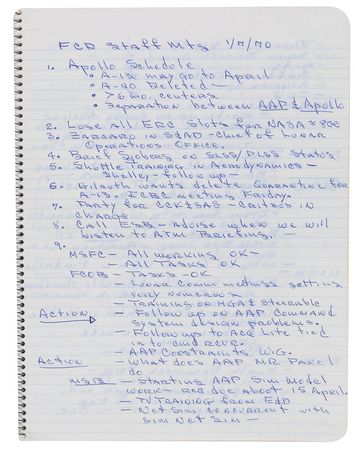 FCD Staff Mtg 1/7/70
1. Apollo Schedule
• A-13 may go to April
• A-20 Deleted –
• >6 mo. centers
• Separation between AAP & Apollo
2. Lose All ERC Slots for NASA
3. in S&AD – Chief of Lunar
Operations Office.
4. Brief Sjoberg on SLSS/PLSS Status
5. Shuttle Training in Aerodynamics –
Shelley – follow up –
6. Gilruth wants delete Quarantine for
A-13. ICBC meeting Friday.
7. Party for CCK & SAS – Critzos in
charge
8. Call ESB – Advise when we will
listen to ATM Briefing. –
9.
MSFC – All working OK –
– All TASKS OK
FCOB – TASKS – OK
– Lunar Comm methods getting
very numerous –
– Training on HGA & Steerable
Action – Follow up on AAP Command
System design problems.
– Follow up to ACQ Lite tied
in to cmd rcvr.
– AAP Constraints W.G.
Action – What does AAP MR Panel
do
MSB – Starting AAP Sim Model
work – doc about 15 April
– TV Training from E&D
– Net Sim concurrent with
Sim Net Sim –